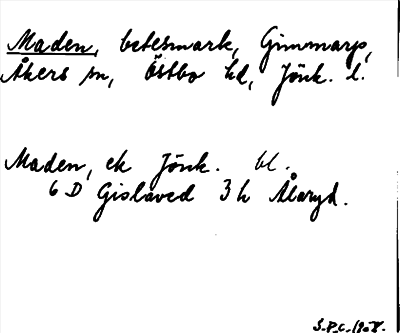 Maden, betesmark, Gimmarp,
Åkers sn, Östbo hd, Jönk. l.
Maden, ek Jönk. bl.
6 D Gislaved 3 h Ålaryd.
S.P.C. 1908.